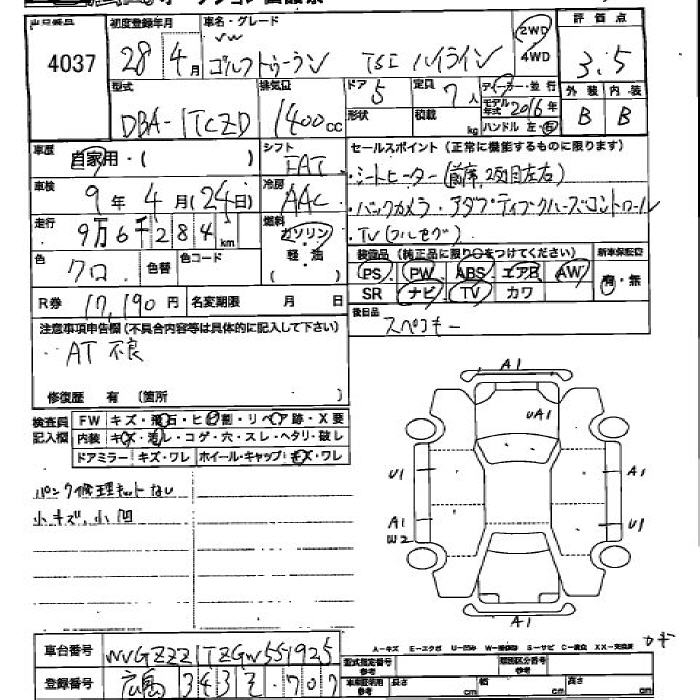 出品番号 初度登録年月 車名・グレード 評価点
4037 28年 4月 VW ゴルフトゥーラン TSI ハイライン 2WD 4WD 3.5
型式 排気量 ドア 5 定員 7人 ディーラー・並行 外装 内装
DBA-1TCZD 1400cc 形状 積載 kg モデル年式 2016年 ハンドル 左・右 B B
車歴 自家用・( ) シフト FAT セールスポイント(正常に機能するものに限ります)
車検 9年 4月(24日) 冷房 AAC ・シートヒーター(前席、2列目左右)
・バックカメラ・アダプティブクルーズコントロール
走行 9万6千284km 燃料 ガソリン 軽油 ・TV(フルセグ)
装備品(純正品に限り○をつけてください) 新車保証書
色 クロ 色替 色コード PS PW ABS エアB AW 有・無
R券 17,190円 名変期限 月 日 SR ナビ TV カワ
注意事項申告欄(不具合内容等は具体的に記入して下さい) 後日品 スペアキー
・AT不良
修復歴 有 (箇所 )
検査員記入欄 FW キズ・飛石・ヒビ割・リペア跡・X要
内装 キズ・汚レ・コゲ・穴・スレ・ヘタリ・破レ
ドアミラー キズ・ワレ ホイール・キャップ キズ・ワレ
パンク修理キットなし
小キズ、小凹
A1
UA1
U1 A1
A1 U1
W2
A1
車台番号 WVGZZZ1TZGW551925
登録番号 広島 343 そ・707
A-キズ E-エクボ U-凹ミ S-サビ C-腐食 XX-交換済
型式指定番号 参考 類別区分番号 参考
長さ cm 幅 cm 高さ cm